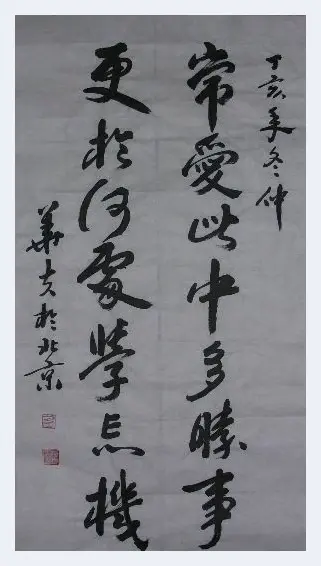 丁亥年冬仲
常愛此中多勝事
更於何處學忘機
華 於北京